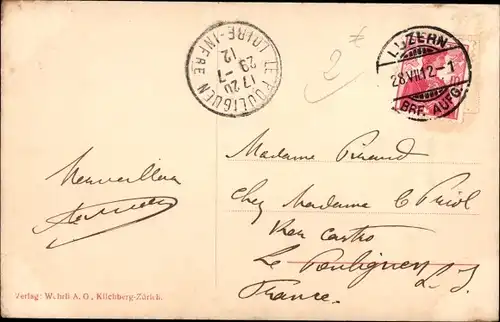 LE POULIGUEN
17 20
29 -7
12
LOIRE-INFRE
2
LUZERN
28.VII.12-1
BRF. AUFG.
Madame
Chez Madame
Ker Castro
Le Pouliguen L. I.
France.
Verlag: Wehrli A. G., Kilchberg-Zürich.